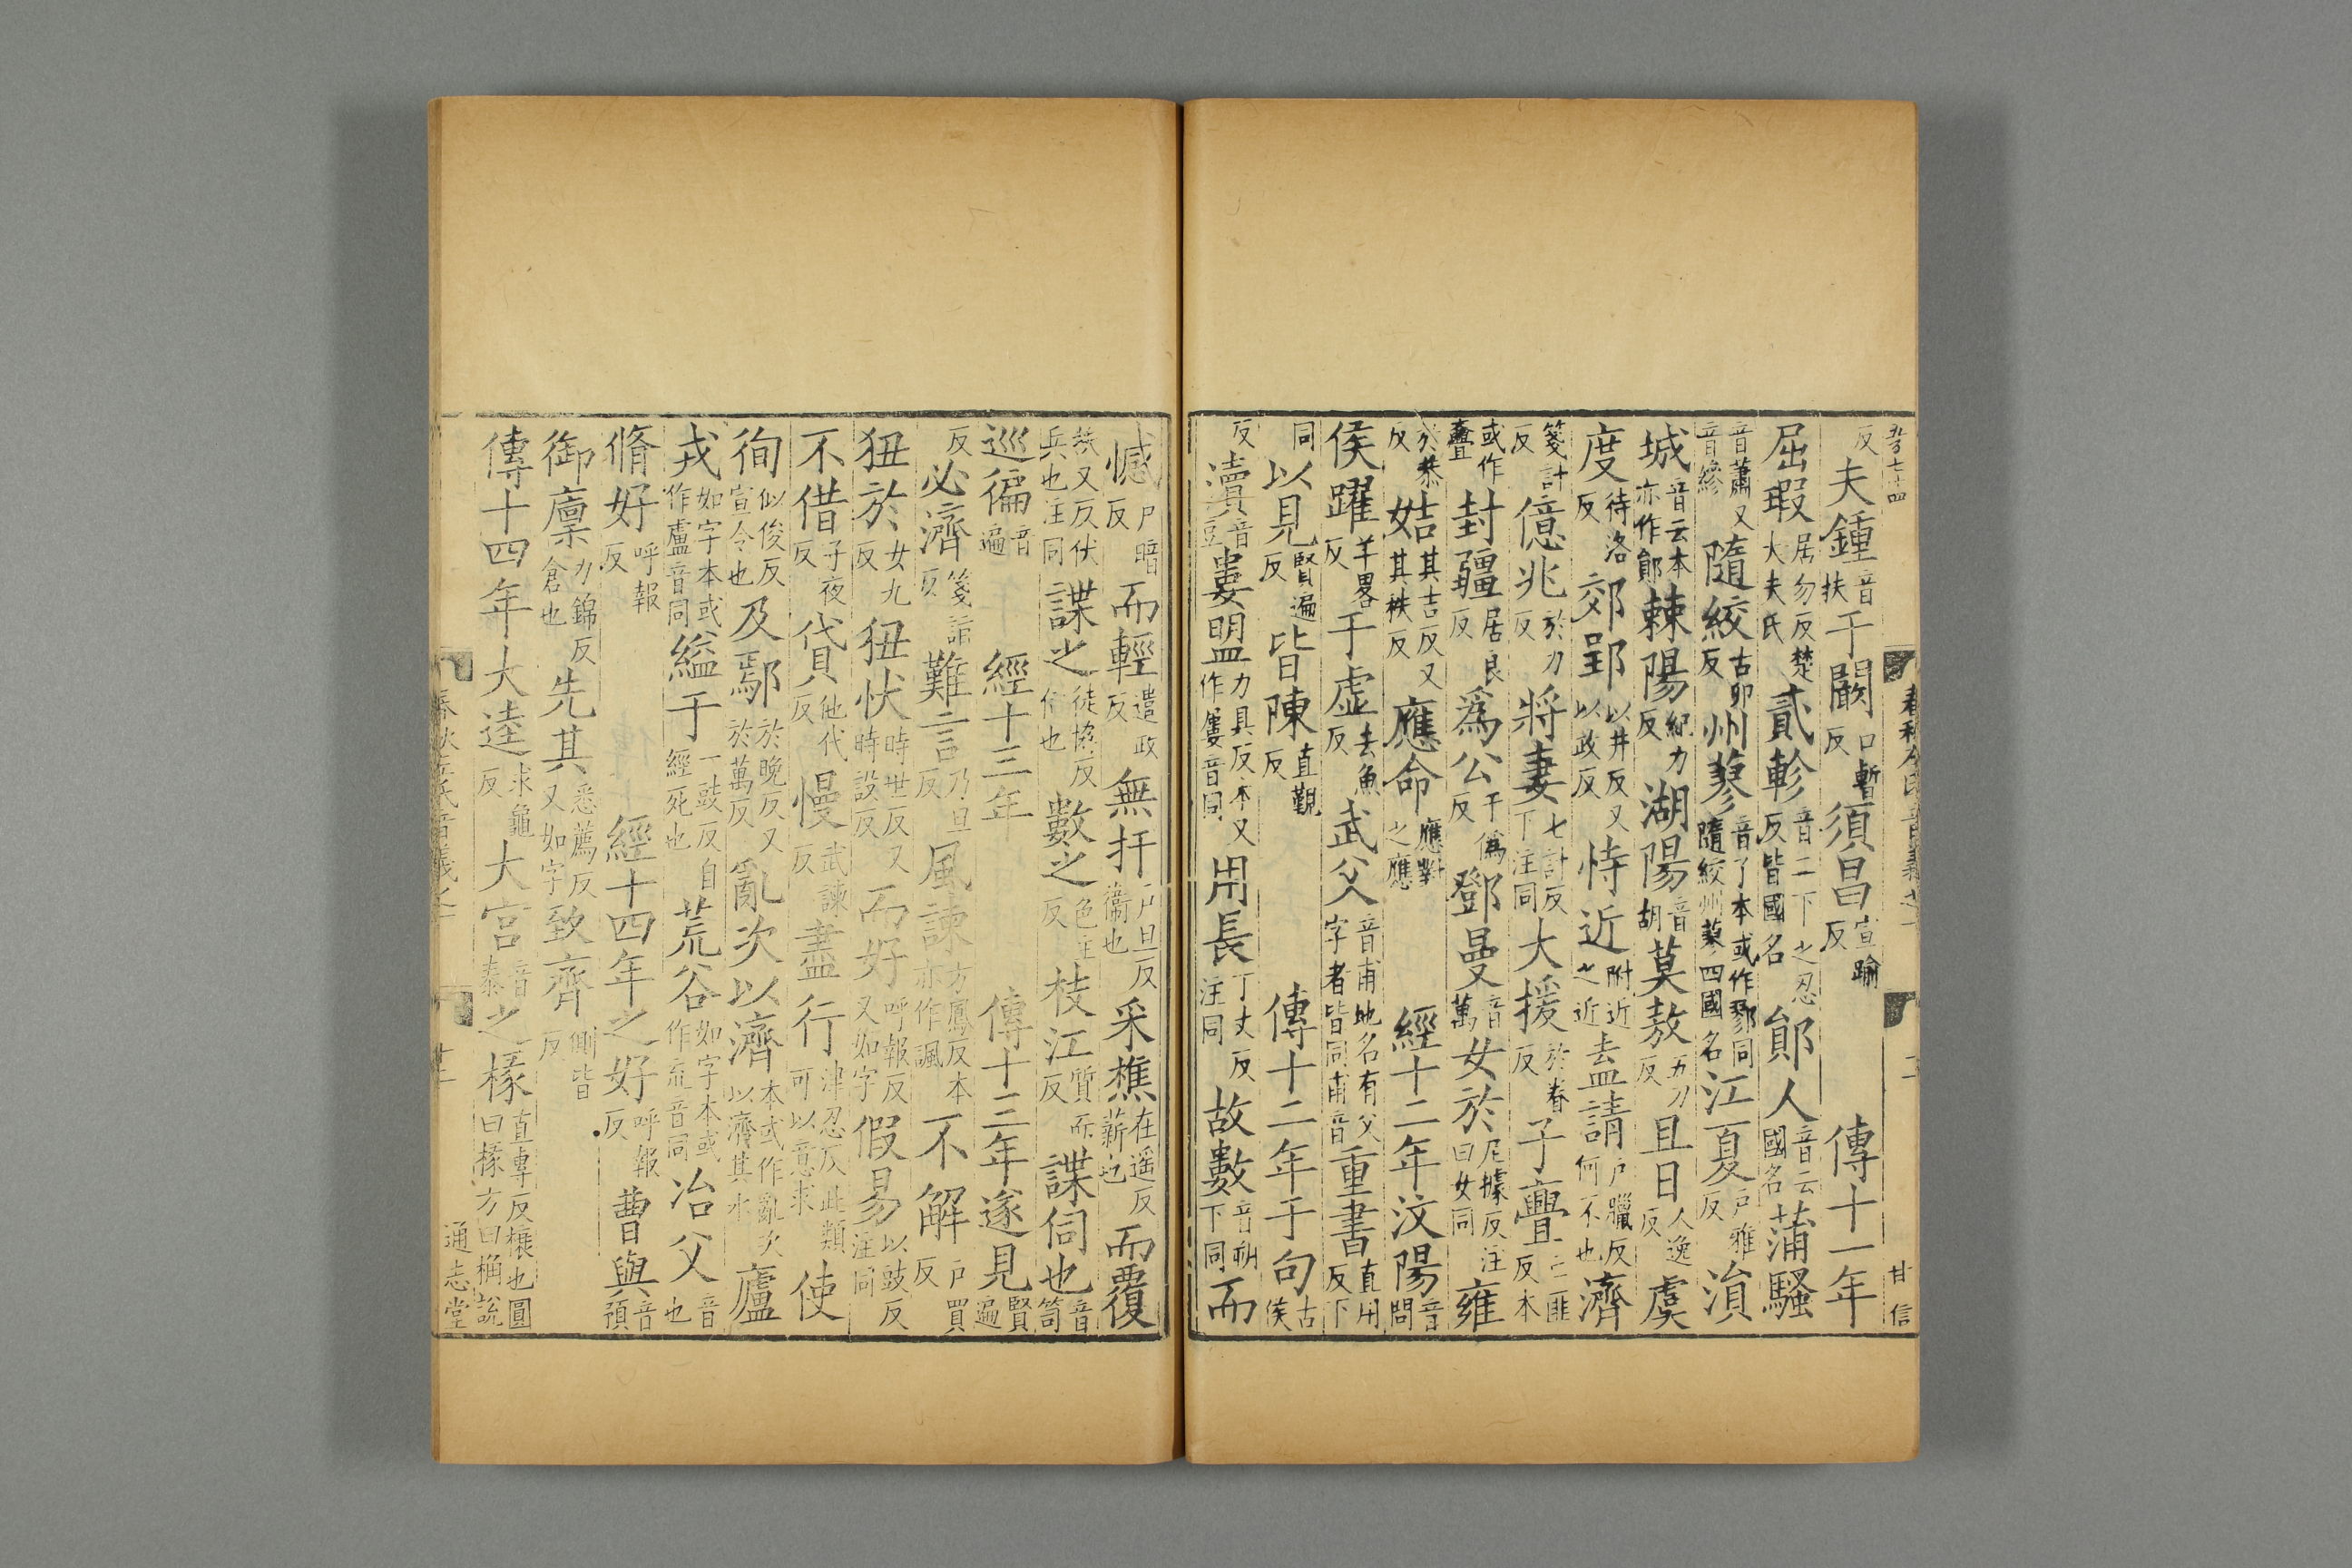 反夫鍾音扶于闞口暫反須昌宣踰反　傳十一年
屈瑕居勿反楚大夫氏貳軫音二下之忍反皆國名鄖人音云國名蒲騷
音蕭又音縿隨絞古卯反州蓼音了本或作鄝同隨絞州蓼四國名江夏戶雅反湏
城音云本亦作鄖棘陽紀力反湖陽音胡莫敖五刀反且日人逸反虞
度待洛反郊郢以井反又以政反恃近附近之近盍請戶臘反何不也濟
箋計反億兆於力反將妻七計反下注同大援於眷反子亹亡匪反本
或作斖封疆居良反爲公于僞反鄧曼音萬女於尼據反注曰女同雍
於恭反姞其吉反又其秩反應命應對之應　經十二年汶陽音問
侯躍羊畧反于虛去魚反武父音甫地名有父字者皆同甫音重書直用反下
同以見賢遍反皆陳直覲反　傳十二年于句古侯
反瀆音豆婁盟力具反本又作屢音同用長丁丈反注同故數音朔下同而
憾戶暗反而輕遣政反無扞戶旦反衞也采樵在遥反薪也而覆
扶又反伏兵也注同諜之徒協反伺也數之色主反枝江質而反諜伺也音笥
巡徧音遍　經十三年　傳十三年遂見賢遍
反必濟箋詣反難言乃旦反風諫方鳳反本亦作諷不解戶買反
狃於女九反狃忕時世反又時設反而好呼報反又如字假易以豉反注同
不借子夜反貸他代反慢武諫反盡行津忍反此類可以意求使
徇似俊反宣令也及鄢於晚反又於萬反亂次以濟本或作亂次以濟其水廬
戎如字本或作盧音同縊于一豉反自經死也荒谷如字本或作㐬音同冶父音也
脩好呼報反　經十四年之好呼報反曹與音預
御廩力錦反倉也先其悉薦反又如字致齊側皆反
傳十四年大逵求龜反大宮音泰之椽直專反榱也圓曰椽方曰桷說
春秋左氏音義之一
通志堂
甘信